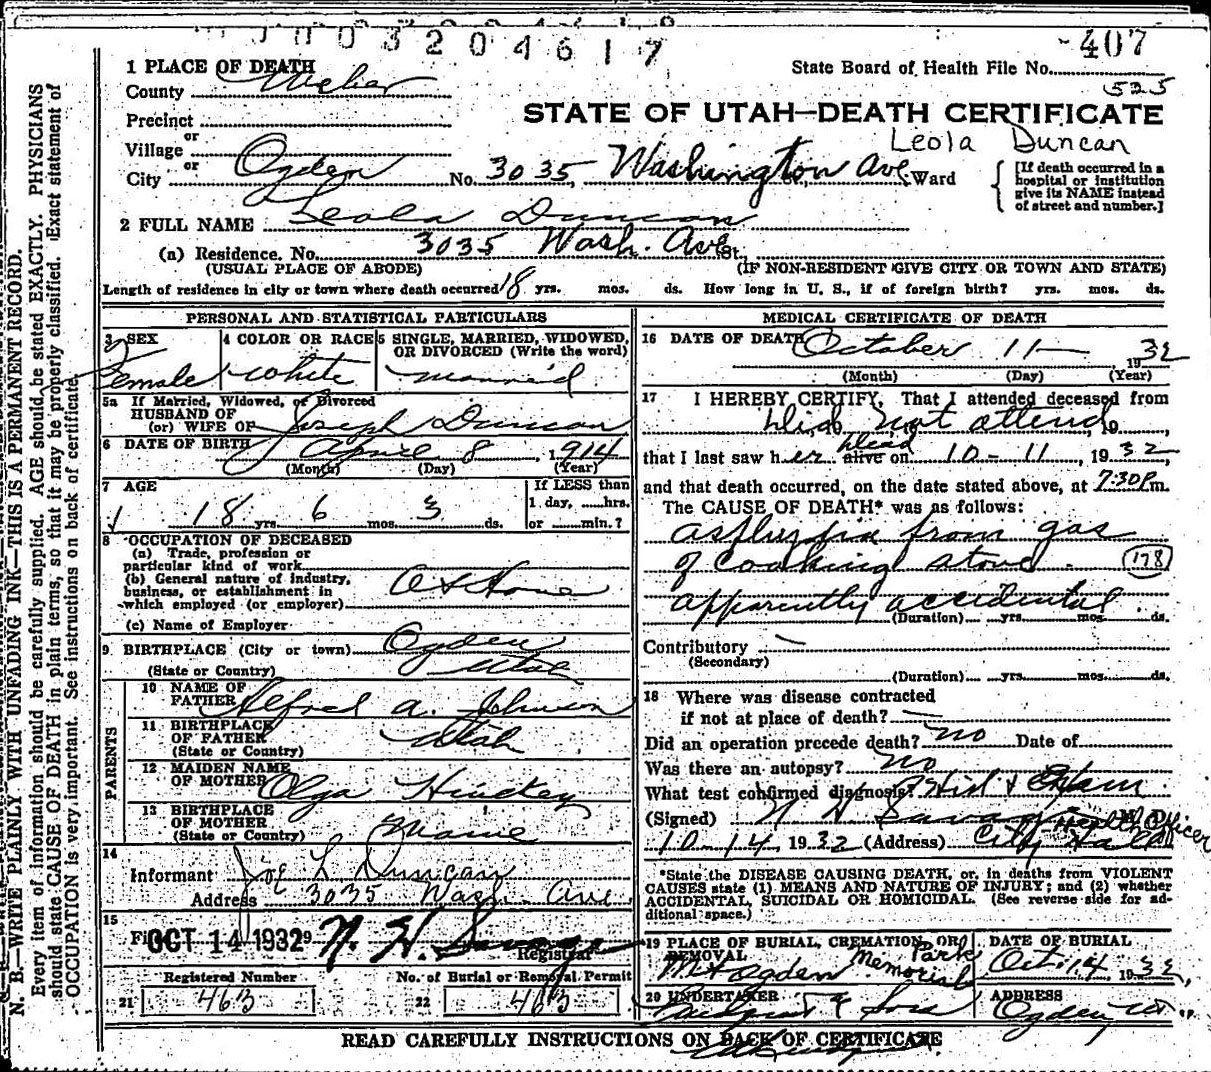 0032 04617
407
1 PLACE OF DEATH
State Board of Health File No.
County Weber
525
STATE OF UTAH—DEATH CERTIFICATE
Precinct
or
Village
Leola Duncan
or
City Ogden No. 3035, Washington Ave. Ward
[If death occurred in a hospital or institution give its NAME instead of street and number.]
2 FULL NAME Leola Duncan
(a) Residence. No. 3035 Wash. Ave St.
(USUAL PLACE OF ABODE) (IF NON-RESIDENT GIVE CITY OR TOWN AND STATE)
Length of residence in city or town where death occurred 18 yrs. mos. ds. How long in U. S., if of foreign birth? yrs. mos. ds.
PERSONAL AND STATISTICAL PARTICULARS
3 SEX
Female
4 COLOR OR RACE
White
5 SINGLE, MARRIED, WIDOWED,
OR DIVORCED (Write the word)
Married
5a If Married, Widowed, or Divorced
HUSBAND OF
(or) WIFE OF Joseph Duncan
6 DATE OF BIRTH April 8, 1914
(Month) (Day) (Year)
7 AGE
18 yrs. 6 mos. 3 ds.
If LESS than
1 day, ......hrs.
or ......min.?
8 OCCUPATION OF DECEASED
(a) Trade, profession or
particular kind of work
(b) General nature of industry,
business, or establishment in
which employed (or employer) At Home
(c) Name of Employer
9 BIRTHPLACE (City or town) Ogden
(State or Country) Utah
PARENTS
10 NAME OF
FATHER Alfred A. Johnson
11 BIRTHPLACE
OF FATHER
(State or Country) Utah
12 MAIDEN NAME
OF MOTHER Olga
13 BIRTHPLACE
OF MOTHER
(State or Country) Maine
14
Informant Joe L Duncan
Address 3035 Wash. Ave.
15
Fi OCT 14 1932 9 N. H. Savage
Registrar
Registered Number No. of Burial or Removal Permit
21 463 22 463
MEDICAL CERTIFICATE OF DEATH
16 DATE OF DEATH October 11 1932
(Month) (Day) (Year)
17 I HEREBY CERTIFY, That I attended deceased from
Did not attend, 19
that I last saw her alive dead on 10-11, 1932,
and that death occurred, on the date stated above, at 7:30 P.m.
The CAUSE OF DEATH* was as follows:
Asphyxia from gas
of cooking stove. 178
apparently accidental.
(Duration) yrs. mos. ds.
Contributory —
(Secondary)
(Duration) yrs. mos. ds.
18 Where was disease contracted
if not at place of death? —
Did an operation precede death? no Date of
Was there an autopsy? no
What test confirmed diagnosis? Hist & Exam
(Signed) N. H. Savage Health Officer M. D.
10-14, 1932 (Address) City Hall
*State the DISEASE CAUSING DEATH, or, in deaths from VIOLENT
CAUSES state (1) MEANS AND NATURE OF INJURY; and (2) whether
ACCIDENTAL, SUICIDAL OR HOMICIDAL. (See reverse side for ad-
ditional space.)
19 PLACE OF BURIAL, CREMATION, OR
REMOVAL
Mt Ogden Memorial Park
DATE OF BURIAL
Oct. 14, 1932,
20 UNDERTAKER
& Sons
ADDRESS
Ogden Ut.
READ CAREFULLY INSTRUCTIONS ON BACK OF CERTIFICATE
N. B.—WRITE PLAINLY WITH UNFADING INK—THIS IS A PERMANENT RECORD.
Every item of information should be carefully supplied. AGE should be stated EXACTLY. PHYSICIANS
should state CAUSE OF DEATH in plain terms, so that it may be properly classified. Exact statement of
OCCUPATION is very important. See instructions on back of certificate.